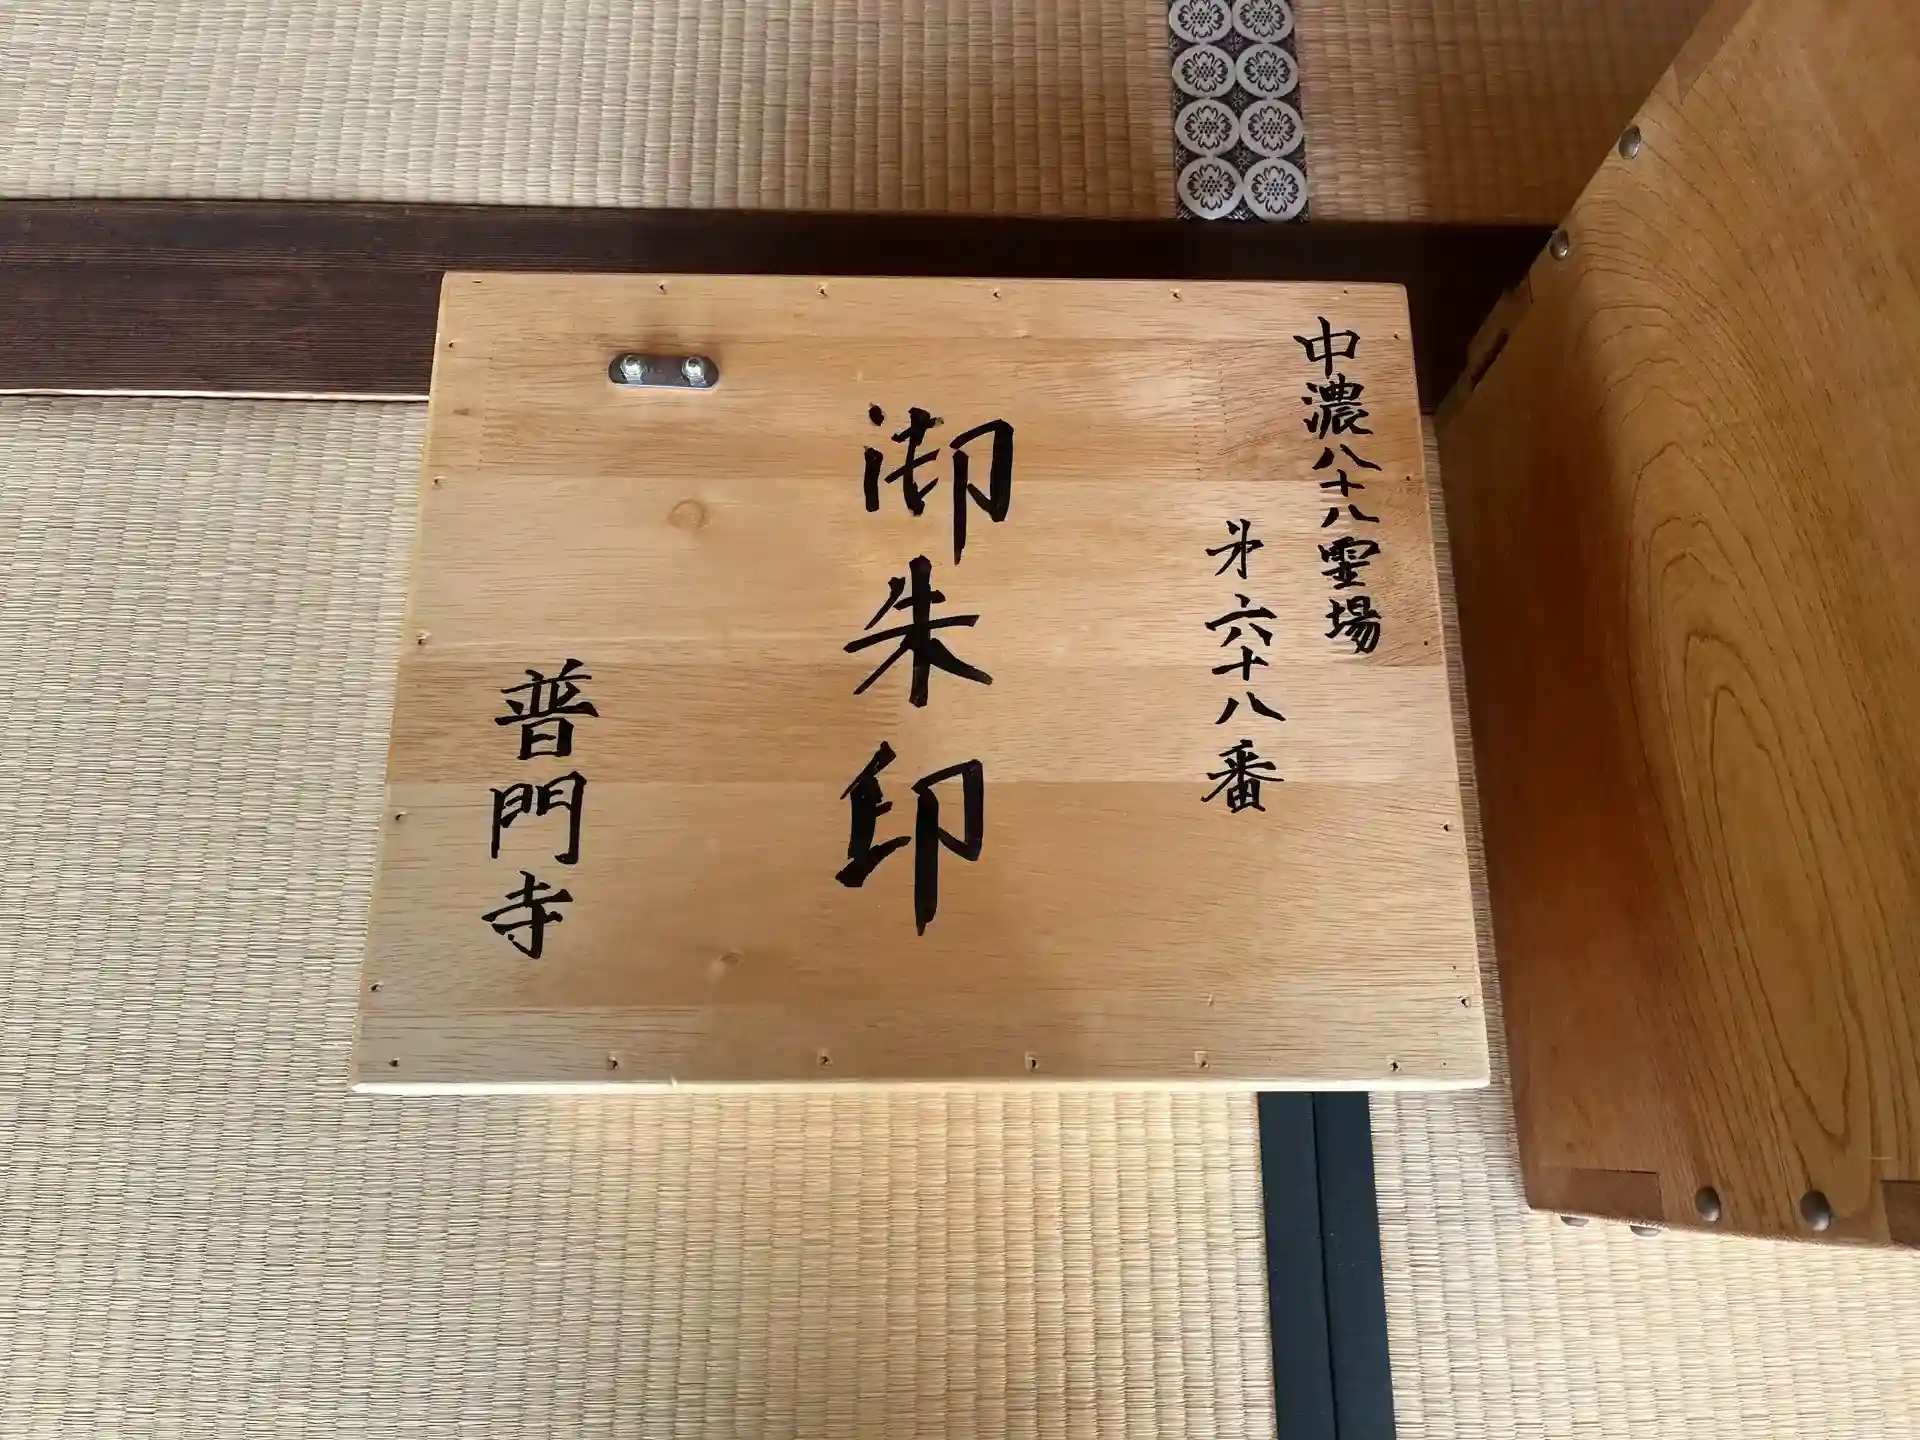 中濃八十八霊場
第六十八番
御朱印
普門寺